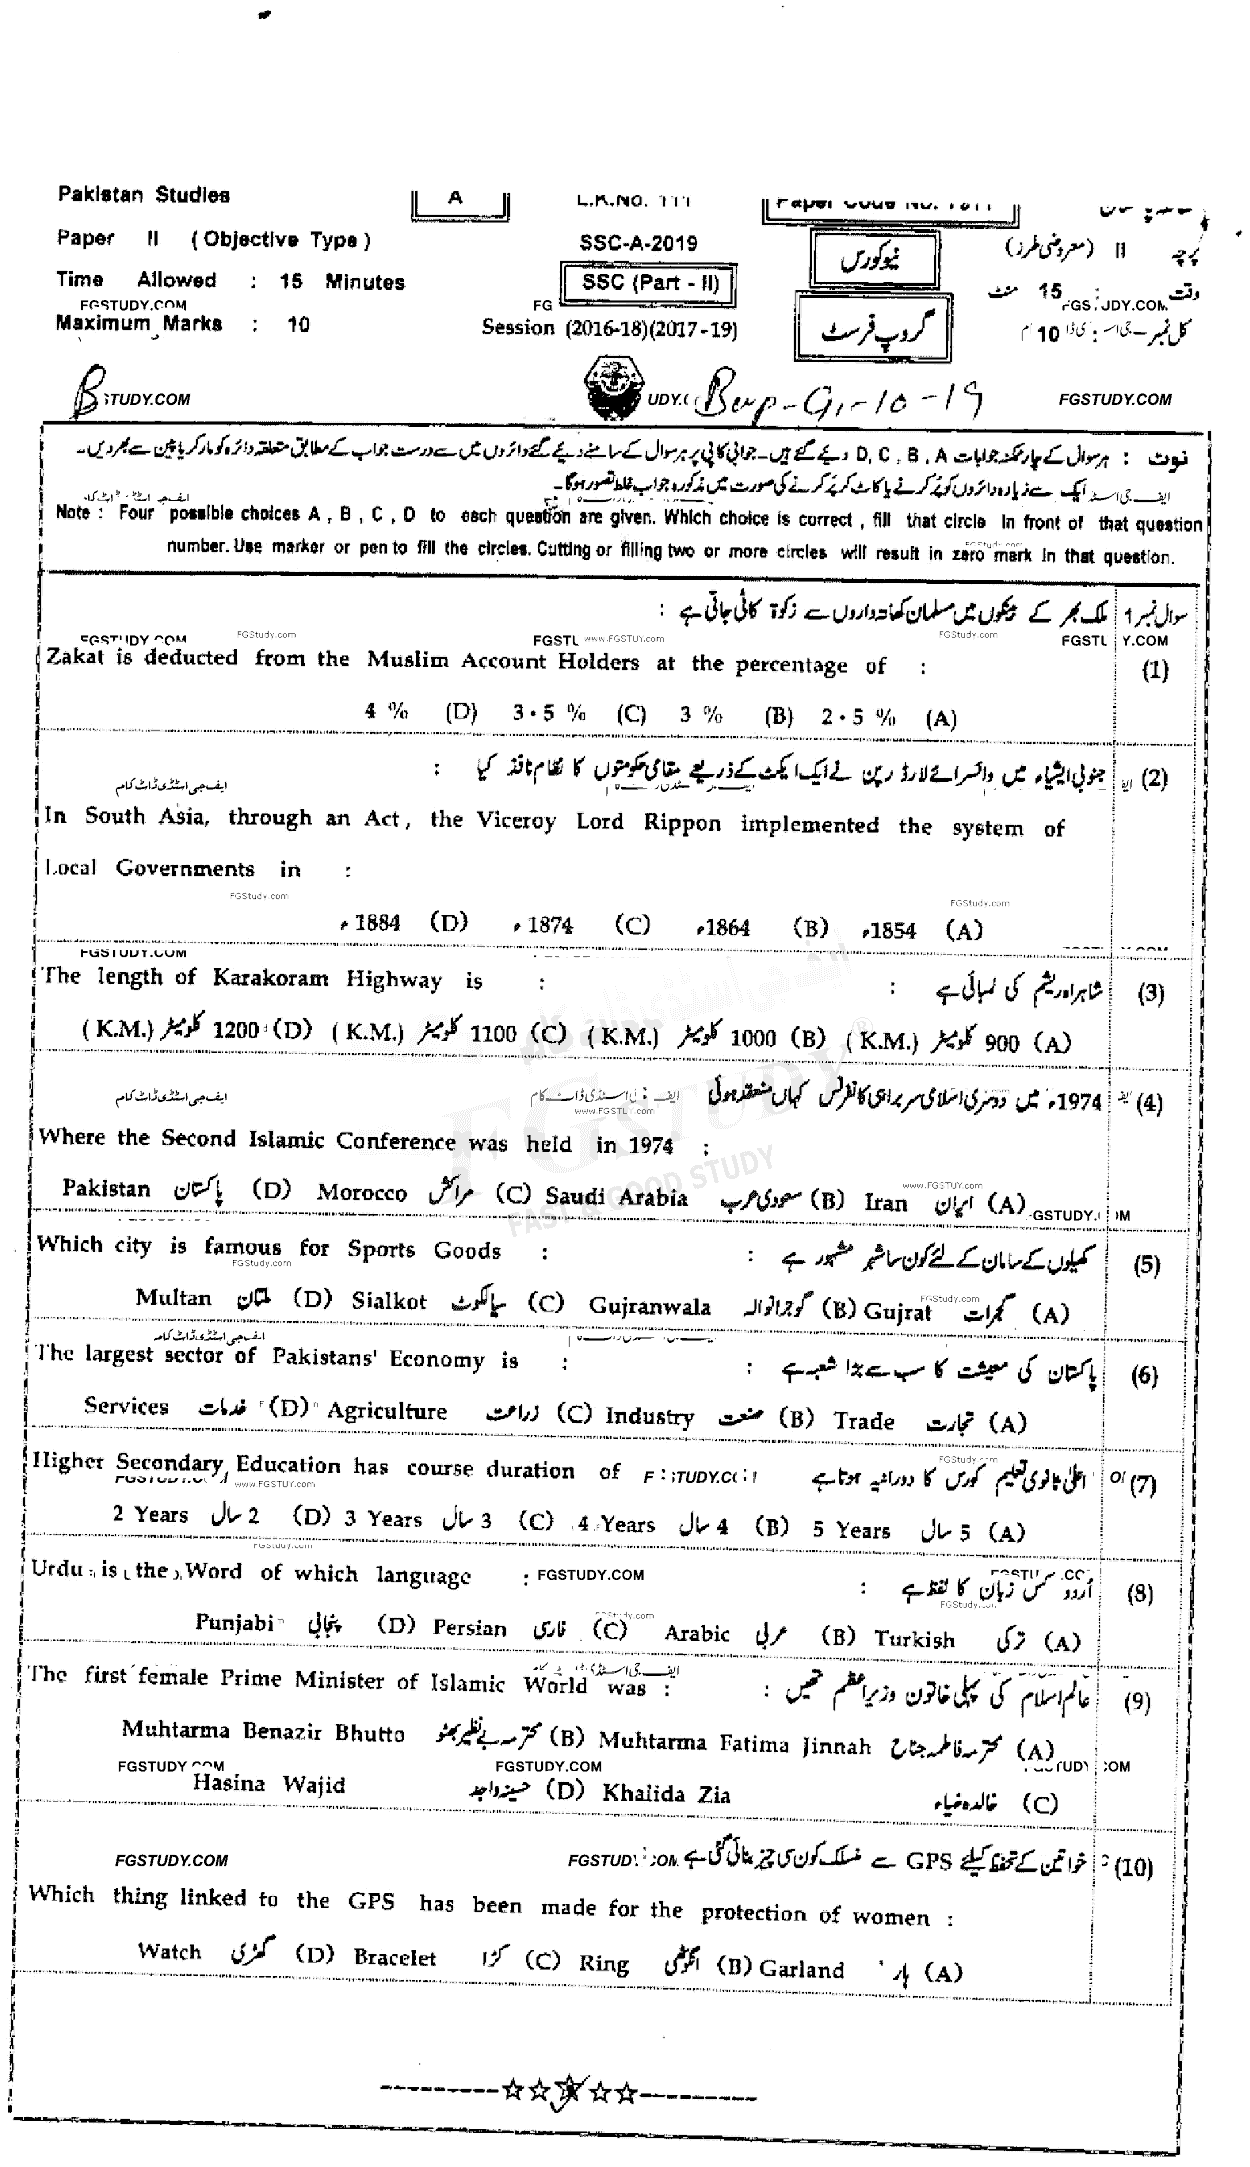 Pakistan Studies
A
L.K.NO. 111
Paper Code No.
Paper II (Objective Type)
SSC-A-2019
نیو کورس
پرچہ II (معروضی طرز)
Time Allowed : 15 Minutes
SSC (Part - II)
وقت : 15 منٹ
FGSTUDY.COM
Maximum Marks : 10
Session (2016-18)(2017-19)
گروپ فرسٹ
کل نمبر 10
STUDY.COM
Bwp-G1-10-19
FGSTUDY.COM
نوٹ : ہر سوال کے چار ممکنہ جوابات D, C, B, A دیئے گئے ہیں۔ جوابی کاپی پر ہر سوال کے سامنے دیئے گئے دائروں میں سے درست جواب کے مطابق متعلقہ دائرہ کو مارکر یا پین سے بھر دیں۔
ایک سے زیادہ دائروں کو پُر کرنے یا کاٹ کر پُر کرنے کی صورت میں مذکورہ جواب غلط تصور ہوگا۔
Note : Four possible choices A , B , C , D to each question are given. Which choice is correct , fill that circle in front of that question
number. Use marker or pen to fill the circles. Cutting or filling two or more circles will result in zero mark in that question.
سوال نمبر 1 ملک بھر کے بینکوں میں مسلمان کھاتہ داروں سے زکوۃ کاٹی جاتی ہے :
FGSTUDY.COM FGStudy.com www.FGSTUY.com FGStudy.com
Zakat is deducted from the Muslim Account Holders at the percentage of : (1)
4 % (D) 3·5 % (C) 3 % (B) 2·5 % (A)
(2) جنوبی ایشیاء میں وائسرائے لارڈ رپن نے ایک ایکٹ کے ذریعے مقامی حکومتوں کا نظام نافذ کیا :
ایف جی اسٹڈی ڈاٹ کام
In South Asia, through an Act, the Viceroy Lord Rippon implemented the system of
Local Governments in :
FGStudy.com FGStudy.com
1884ء (D) 1874ء (C) 1864ء (B) 1854ء (A)
FGSTUDY.COM
The length of Karakoram Highway is : شاہراہ ریشم کی لمبائی ہے : (3)
(K.M.) کلومیٹر 1200 (D) (K.M.) کلومیٹر 1100 (C) (K.M.) کلومیٹر 1000 (B) (K.M.) کلومیٹر 900 (A)
(4) 1974ء میں دوسری اسلامی سربراہی کانفرنس کہاں منعقد ہوئی
ایف جی اسٹڈی ڈاٹ کام
Where the Second Islamic Conference was held in 1974 :
Pakistan پاکستان (D) Morocco مراکش (C) Saudi Arabia سعودی عرب (B) Iran ایران (A)
FGSTUDY
FAST N GOOD STUDY
Which city is famous for Sports Goods : کھیلوں کے سامان کے لئے کون سا شہر مشہور ہے : (5)
FGStudy.com
Multan ملتان (D) Sialkot سیالکوٹ (C) Gujranwala گوجرانوالہ (B) Gujrat گجرات (A)
ایف جی اسٹڈی ڈاٹ کام
The largest sector of Pakistans' Economy is : پاکستان کی معیشت کا سب سے بڑا شعبہ ہے : (6)
Services خدمات (D) Agriculture زراعت (C) Industry صنعت (B) Trade تجارت (A)
Higher Secondary Education has course duration of اعلیٰ ثانوی تعلیم کورس کا دورانیہ ہوتا ہے (7)
www.FGSTUY.com
2 Years 2 سال (D) 3 Years 3 سال (C) 4 Years 4 سال (B) 5 Years 5 سال (A)
Urdu is the Word of which language : FGSTUDY.COM اُردو کس زبان کا لفظ ہے : (8)
Punjabi پنجابی (D) Persian فارسی (C) Arabic عربی (B) Turkish ترکی (A)
The first female Prime Minister of Islamic World was : عالم اسلام کی پہلی خاتون وزیراعظم تھیں : (9)
Muhtarma Benazir Bhutto محترمہ بے نظیر بھٹو (B) Muhtarma Fatima Jinnah محترمہ فاطمہ جناح (A)
FGSTUDY.COM FGSTUDY.COM
Hasina Wajid حسینہ واجد (D) Khalida Zia خالدہ ضیاء (C)
FGSTUDY.COM خواتین کے تحفظ کیلئے GPS سے منسلک کون سی چیز بنائی گئی ہے (10)
Which thing linked to the GPS has been made for the protection of women :
Watch گھڑی (D) Bracelet کڑا (C) Ring انگوٹھی (B) Garland ہار (A)